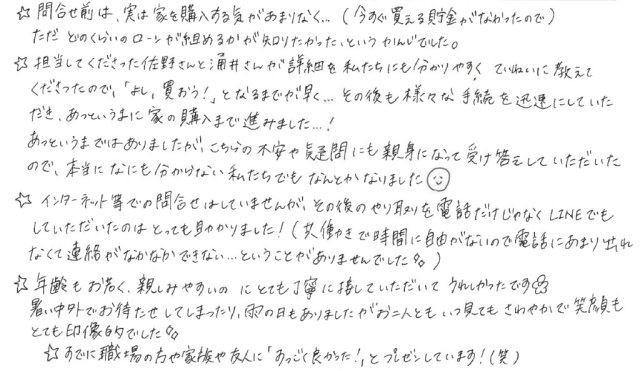 ☆ 問合せ前は、実は家を購入する気があまりなく…(今すぐ買える貯金がなかったので)
ただ どのくらいのローンが組めるかが知りたかった、というかんじでした。
☆ 担当してくださった佐野さんと涌井さんが詳細を私たちにも分かりやすく ていねいに教えて
くださったので、「よし、買おう!」となるまでが早く…その後も様々な手続を迅速にしていた
だき、あっというまに家の購入まで進みました…!
あっというまではありましたが、こちらの不安や質問にも親身になって受け答えしていただいた
ので、本当になにも分からない私たちでもなんとかなりました
☆ インターネット等での問合せはしていませんが、その後のやり取りを電話だけじゃなくLINEでも
していただいたのはとっても助かりました!(共働きで時間に自由がないので電話にあまり出れ
なくて連絡がなかなかできない…ということがありませんでした。)
☆ 年齢もお若く、親しみやすいのにとても丁寧に接していただいてうれしかったです
暑い中外でお待たせしてしまったり、雨の日もありましたがお二人ともいつ見てもさわやかで笑顔も
とても印象的でした
☆ すでに職場の方や家族や友人に「すっごく良かった!」とプレゼンしています!(笑)